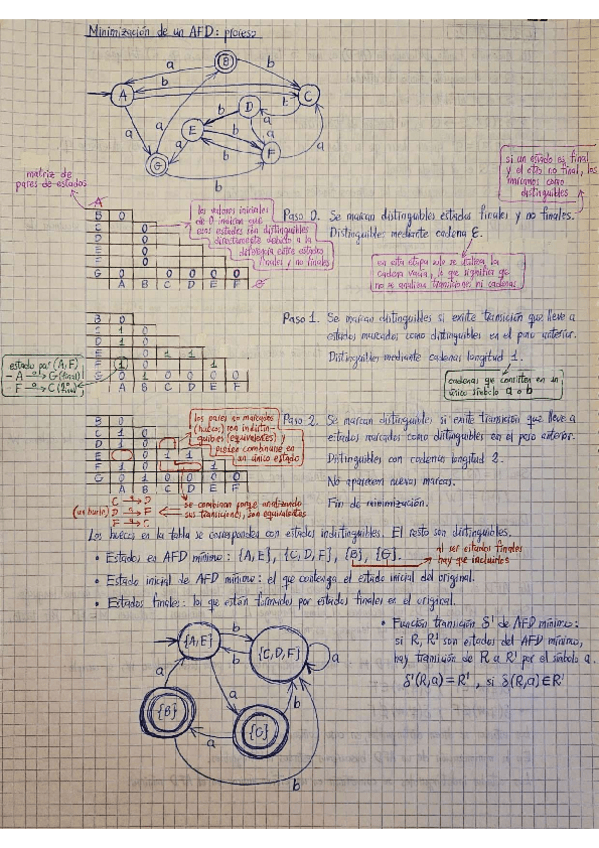 Minimización de un AFD: proceso
B
a
b
A
b
C
b
D
b
a
b
a
E
a
a
b
a
F
a
G
b
matriz de
pares de estados
A
B 0
C 0
D 0
E 0
F 0
G 0 0 0 0 0
A B C D E F G
los valores iniciales
de 0 indican que
esos estados son distinguibles
directamente debido a la
diferencia entre estados
finales y no finales
Paso 0. Se marcan distinguibles estados finales y no finales.
Distinguibles mediante cadena ε.
si un estado es final
y el otro no final, los
marcamos como
distinguibles
en esta etapa solo se utiliza la
cadena vacía, lo que significa que
no se analizan transiciones ni cadenas
B 0
C 1 0
D 1 0
E 0 1 1
F 1 0 1
G 0 1 0 0 0 0
A B C D E F
estado par (A,F)
- A a→ G (final)
- F a→ C (no final)
Paso 1. Se marcan distinguibles si existe transición que lleve a
estados marcados como distinguibles en el paso anterior.
Distinguibles mediante cadenas longitud 1.
cadenas que consisten en un
único símbolo a o b
B 0
C 1 0
D 1 0
E 0 1 1
F 1 0 1
G 0 1 0 0 0 0
A B C D E F
los pares no marcados
(huecos) son indistin-
guibles (equivalentes) y
pueden combinarse en
un único estado
Paso 2. Se marcan distinguibles si existe transición que lleve a
estados marcados como distinguibles en el paso anterior.
Distinguibles con cadenas longitud 2.
No aparecen nuevas marcas.
Fin de minimización.
(un bucle)
se combinan porque analizando
sus transiciones, son equivalentes
Los huecos en la tabla se corresponden con estados indistinguibles. El resto son distinguibles.
• Estados en AFD mínimo: {A,E}, {C,D,F}, {B}, {G}.
al ser estados finales
hay que incluirlos
• Estado inicial de AFD mínimo: el que contenga el estado inicial del original.
• Estados finales: los que están formados por estados finales en el original.
{A,E}
b
b
{C,D,F}
a
a
a
b
{B}
a
{G}
b
• Función transición δ' de AFD mínimo:
si R, R' son estados del AFD mínimo,
hay transición de R a R' por el símbolo a.
δ'(R,a) = R', si δ(R,a) ∈ R'